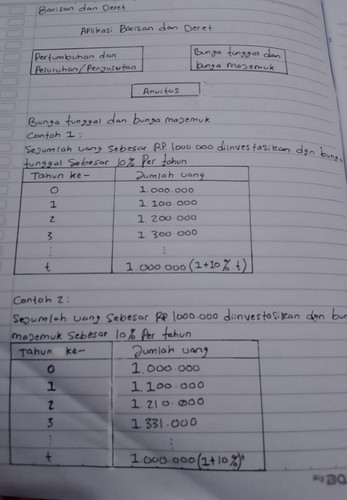 Barisan dan Deret
Aplikasi Barisan dan Deret
Pertumbuhan dan
Peluruhan/Penyusutan
Bunga tunggal dan
bunga majemuk
Anuitas
Bunga tunggal dan bunga majemuk
Contoh 1:
Sejumlah uang sebesar RP 1000.000 diinvestasikan dgn bunga
tunggal sebesar 10% Per tahun
Tahun ke- Jumlah uang
0 1.000.000
1 1 100.000
2 1 200.000
3 1 300.000
⋮ ⋮
t 1.000.000 (1+10% t)
Contoh 2:
Sejumlah uang sebesar RP 1000.000 diinvestasikan dgn bun
majemuk sebesar 10% Per tahun
Tahun ke- Jumlah uang
0 1.000.000
1 1.100.000
2 1.210.000
3 1.331.000
⋮ ⋮
t 1.000.000 (1+10%)ᵗ